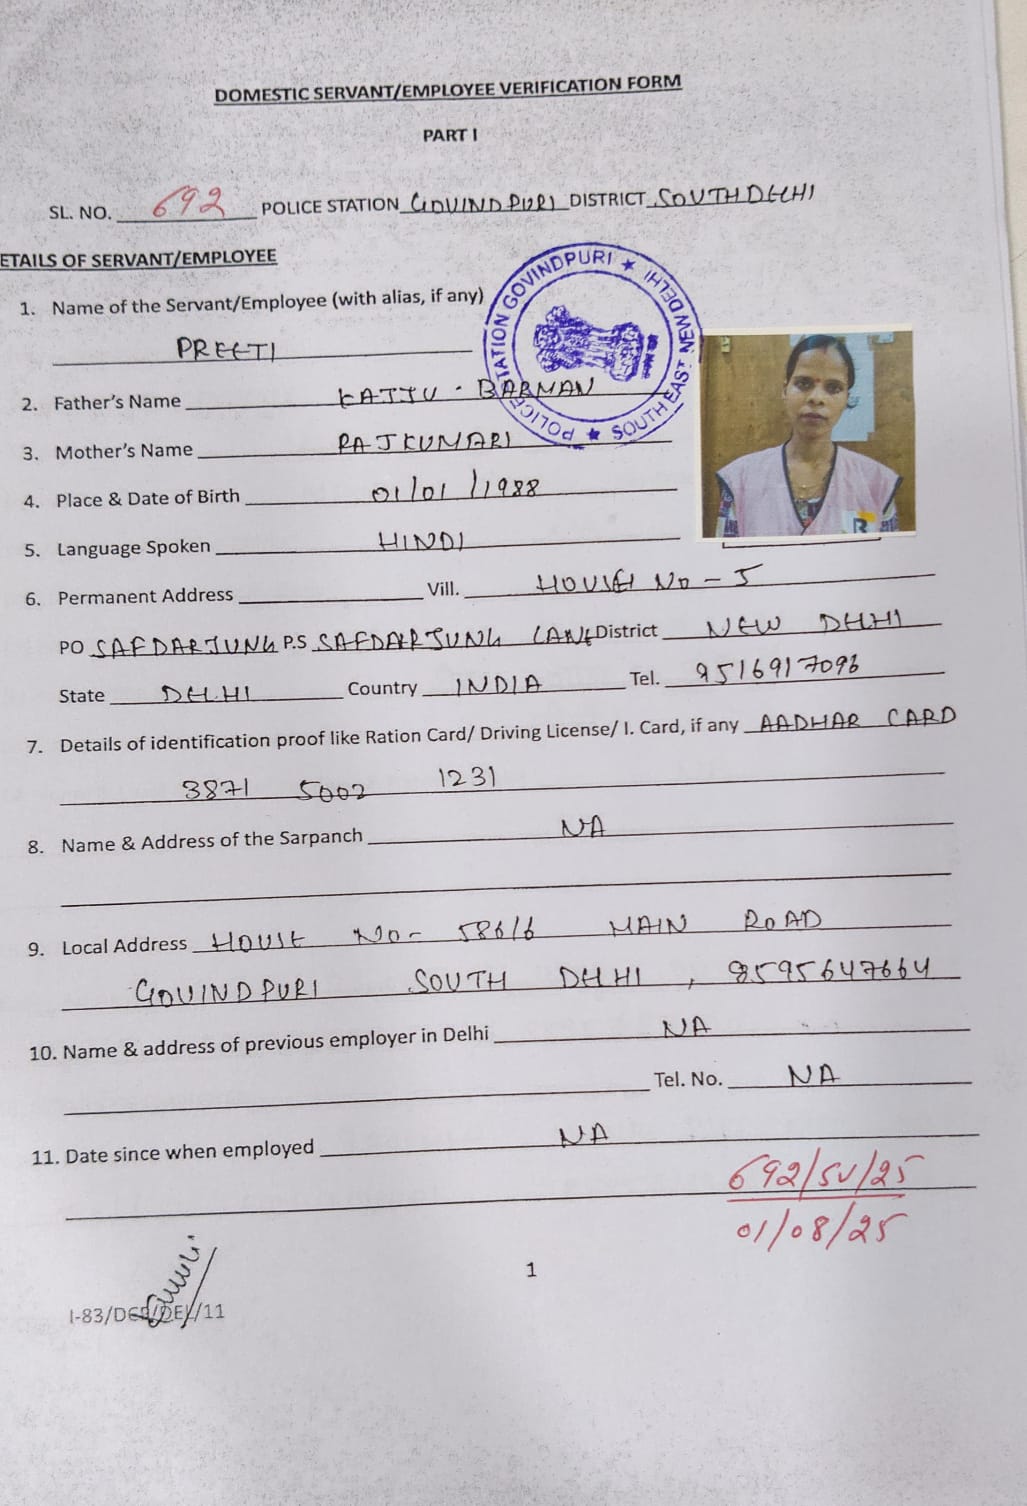 DOMESTIC SERVANT/EMPLOYEE VERIFICATION FORM
PART I
SL. NO. 692 POLICE STATION GOVINDPURI DISTRICT SOUTH DELHI
ETAILS OF SERVANT/EMPLOYEE
POLICE STATION GOVINDPURI ★ SOUTH EAST NEW DELHI ★
1. Name of the Servant/Employee (with alias, if any)
PREETI
2. Father's Name BARMAN
3. Mother's Name RAJKUMARI
4. Place & Date of Birth 01/01/1988
5. Language Spoken HINDI
6. Permanent Address Vill. HOUSE NO - 5
PO SAFDARJUNG P.S SAFDARJUNG LANE District NEW DELHI
State DELHI Country INDIA Tel. 9516917093
7. Details of identification proof like Ration Card/ Driving License/ I. Card, if any AADHAR CARD
3871 5002 1231
8. Name & Address of the Sarpanch NA
9. Local Address HOUSE NO - 586/6 MAIN ROAD
GOVINDPURI SOUTH DELHI , 8595647664
10. Name & address of previous employer in Delhi NA
Tel. No. NA
11. Date since when employed NA
692/SV/25
01/08/25
1